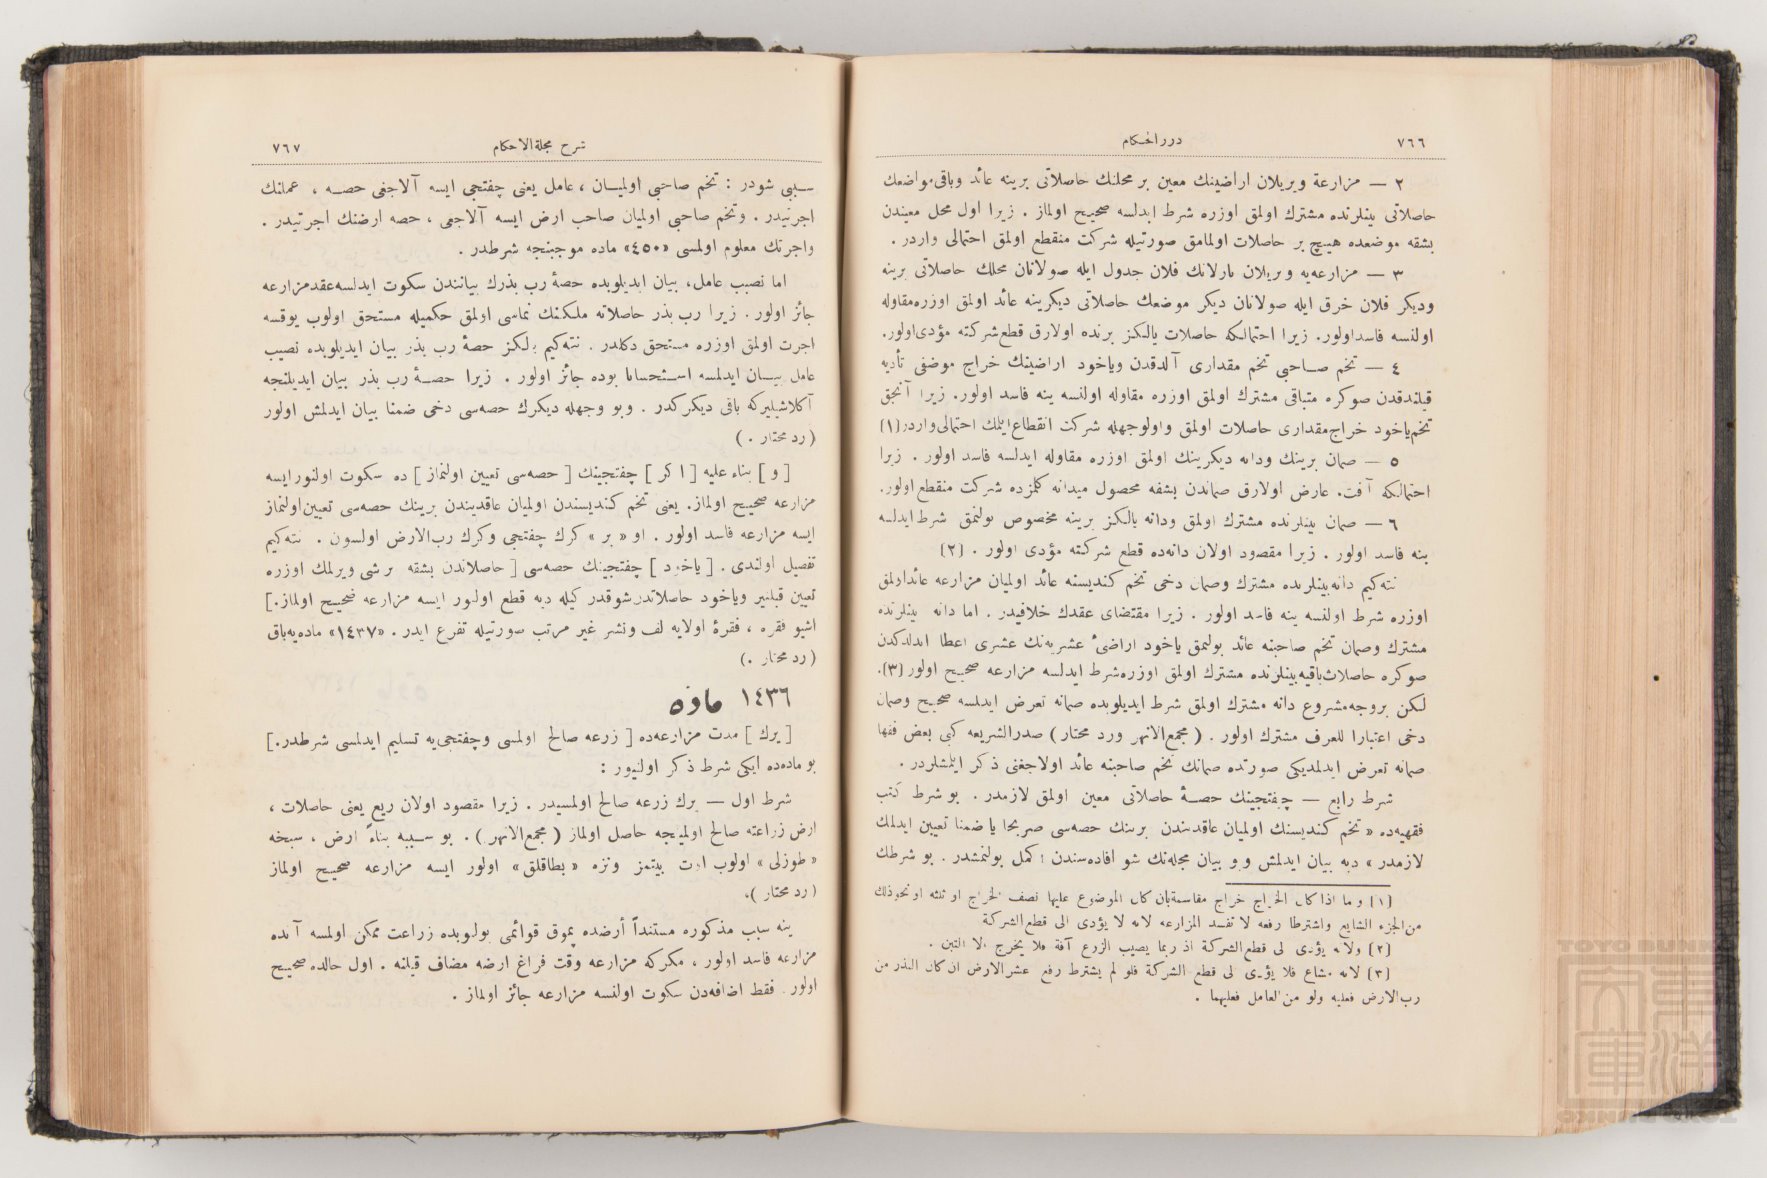 ٧٦٦
درر الحكام
٢ — مزارعة ويريلان اراضينك معين بر محلنك حاصلاتى برينه عائد وباقى مواضعك
حاصلاتى بينلرنده مشترك اولمق اوزره شرط ايدلسه صحيح اولماز . زيرا اول محل معيندن
بشقه موضعده هيچ بر حاصلات اولمامق صورتيله شركت منقطع اولمق احتمالى واردر .
٣ — مزارعه‌يه ويريلان تارلانك فلان جدول ايله صولانان محلك حاصلاتى برينه
وديكر فلان خرق ايله صولانان ديكر موضعك حاصلاتى ديكرينه عائد اولمق اوزره مقاوله
اولنسه فاسد اولور. زيرا احتمالكه حاصلات يالكز برنده اولارق قطع شركته مؤدى اولور.
٤ — تخم صاحبى تخم مقدارى آلدقدن وياخود اراضينك خراج موضفى تأديه
قيلندقدن صوكره متباقى مشترك اولمق اوزره مقاوله اولنسه ينه فاسد اولور. زيرا آنجق
تخم ياخود خراج مقدارى حاصلات اولمق واولوجهله شركت انقطاع ايتمك احتمالى واردر [١]
٥ — صمان برينك ودانه ديكرينك اولمق اوزره مقاوله ايدلسه فاسد اولور . زيرا
احتمالكه آفت عارض اولارق صماندن بشقه محصول ميدانه كلمزده شركت منقطع اولور.
٦ — صمان بينلرنده مشترك اولمق ودانه يالكز برينه مخصوص بولنمق شرط ايدلسه
ينه فاسد اولور . زيرا مقصود اولان دانه‌ده قطع شركته مؤدى اولور . [٢]
نته‌كيم دانه بينلرنده مشترك وصمان دخى تخم كنديسنه عائد اوليان مزارعه عائد اولمق
اوزره شرط اولنسه ينه فاسد اولور . زيرا مقتضاى عقدك خلافيدر . اما دانه بينلرنده
مشترك وصمان تخم صاحبنه عائد بولنمق ياخود اراضئ عشريه‌نك عشرى اعطا ايدلدكدن
صوكره حاصلات باقيه بينلرنده مشترك اولمق اوزره شرط ايدلسه مزارعه صحيح اولور [٣].
لكن بروجه مشروع دانه مشترك اولمق شرط ايديلوبده صمانه تعرض ايدلسه صحيح وصمان
دخى اعتبارا للعرف مشترك اولور . ( مجمع الانهر ورد محتار ) صدر الشريعه كبى بعض فقها
صمانه تعرض ايدلمديكى صورتده صمانك تخم صاحبنه عائد اولاجغنى ذكر ايتمشلردر .
شرط رابع — چفتجينك حصۀ حاصلاتى معين اولمق لازمدر . بو شرط كتب
فقهيه‌ده « تخم كنديسنك اوليان عاقديندن برينك حصه‌سى صريحا يا ضمنا تعيين ايدلمك
لازمدر » ديه بيان ايدلمش وبو بيان مجله‌نك شو افاده‌سندن اكمل بولنمشدر . بو شرطك
[١] وما اذا كان الخراج خراج مقاسمة بان كان الموضوع عليها نصف الخراج او ثلثه او نحو ذلك
من الجزء الشايع واشترطا رفعه لا تفسد المزارعه لانه لا يؤدى الى قطع الشركة
[٢] ولانه يؤدى لى قطع الشركة اذ ربما يصيب الزرع آفة فلا يخرج الا التبن .
[٣] لانه مشاع فلا يؤدى لى قطع الشركة فلو لم يشترط رفع عشر الارض ان كان البذر من
رب الارض فعليه ولو من العامل فعليهما .
شرح مجلة الاحكام
٧٦٧
سببى شودر : تخم صاحبى اوليان ، عامل يعنى چفتجى ايسه آلاجغى حصه ، عملنك
اجرتيدر . وتخم صاحبى اوليان صاحب ارض ايسه آلاجغى ، حصه ارضنك اجرتيدر .
واجرتك معلوم اولمسى «٤٥٠» ماده موجبنجه شرطدر .
اما نصيب عامل، بيان ايديلوبده حصۀ رب بذرك بيانندن سكوت ايدلسه عقد مزارعه
جائز اولور . زيرا رب بذر حاصلاته ملكنك نماسى اولمق حكميله مستحق اولوب يوقسه
اجرت اولمق اوزره مستحق دكلدر . نته‌كيم يالكز حصۀ رب بذر بيان ايديلوبده نصيب
عامل بيان ايدلمسه استحسانا بوده جائز اولور . زيرا حصۀ رب بذر بيان ايديلنجه
آكلاشيليركه باقى ديكركدر . وبو وجهله ديكرك حصه‌سى دخى ضمنا بيان ايدلمش اولور
( رد محتار . )
[ و ] بناء عليه [ اكر ] چفتجينك [ حصه‌سى تعيين اولنماز ] ده سكوت اولنور ايسه
مزارعه صحيح اولماز. يعنى تخم كنديسندن اوليان عاقديندن برينك حصه‌سى تعيين اولنماز
ايسه مزارعه فاسد اولور . او « بر » كرك چفتجى وكرك رب الارض اولسون . نته‌كيم
تفصيل اولندى . [ ياخود ] چفتجينك حصه‌سى [ حاصلاندن بشقه برشى ويرلمك اوزره
تعيين قيلنير وياخود حاصلاتدن شوقدر كيله ديه قطع اولنور ايسه مزارعه صحيح اولماز.]
اشبو فقره ، فقرۀ اولايه لف ونشر غير مرتب صورتيله تفرع ايدر . «١٤٣٧» ماده‌يه باق
( رد محتار .)
١٤٣٦ ماده
[ يرك ] مدت مزارعه‌ده [ زرعه صالح اولمسى وچفتجى‌يه تسليم ايدلمسى شرطدر.]
بو ماده‌ده ايكى شرط ذكر اولنيور :
شرط اول — يرك زرعه صالح اولمسيدر . زيرا مقصود اولان ريع يعنى حاصلات ،
ارض زراعته صالح اولمينجه حاصل اولماز ( مجمع الانهر ). بو سببه بناءً ارض ، سبخه
« طوزلى » اولوب اوت بيتمز ونزه « بطاقلق » اولور ايسه مزارعه صحيح اولماز
( رد محتار ).
ينه سبب مذكوره مستنداً أرضده پموق قوائمى بولنوبده زراعت ممكن اولمسه آنده
مزارعه فاسد اولور ، مكركه مزارعه وقت فراغ ارضه مضاف قيلنه . اول حالده صحيح
اولور . فقط اضافه‌دن سكوت اولنسه مزارعه جائز اولماز .
TOYO BUNKO